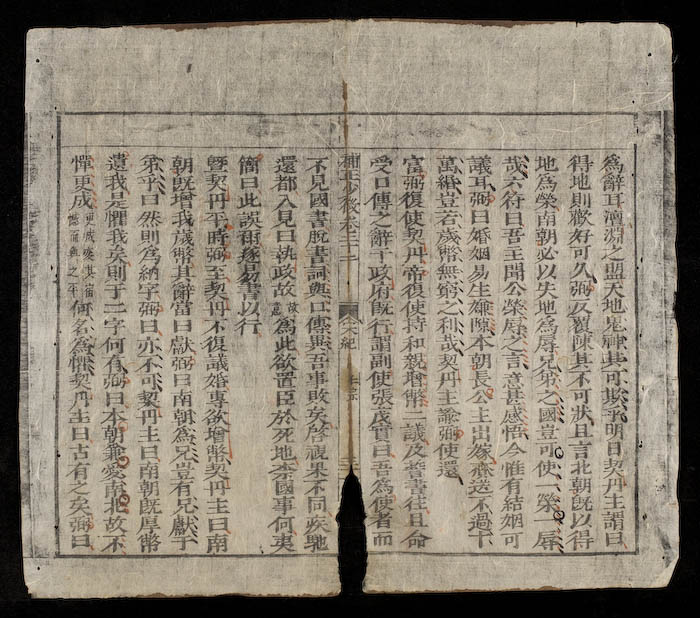 爲辭耳澶淵之盟天地鬼神其可欺乎明日契丹主謂曰
得地則歡好可久弼反覆陳其不可狀且言北朝既以得
地爲榮南朝必以失地爲辱兄弟之國豈可使一榮一辱
哉六符曰吾主聞公榮辱之言意甚感悟今惟有結姻可
議耳弼曰婚姻易生嫌隙本朝長公主出嫁齎送不過十
萬緡豈若歲幣無窮之利哉契丹主諭弼使還
富弼復使契丹帝復使持和親增幣二議及誓書往且命
受口傳之辭于政府既行謂副使張茂實曰吾爲使者而
補正少微卷三十
宋紀
不見國書脫書詞與口傳異吾事敗矣啓視果不同疾馳
還都入見曰執政故爲此欲置臣於死地柰國事何夷
簡曰此誤爾遂易書以行
曁契丹平時弼至契丹不復議婚專欲增幣契丹主曰南
朝既增我歲幣其辭當曰獻弼曰南朝爲兄豈有兄獻于
弟乎曰然則爲納字弼曰亦不可契丹主曰南朝既厚幣
遺我是懼我矣則于二字何有弼曰本朝兼愛南北故不
憚更成何名爲懼契丹主曰古有之矣弼曰